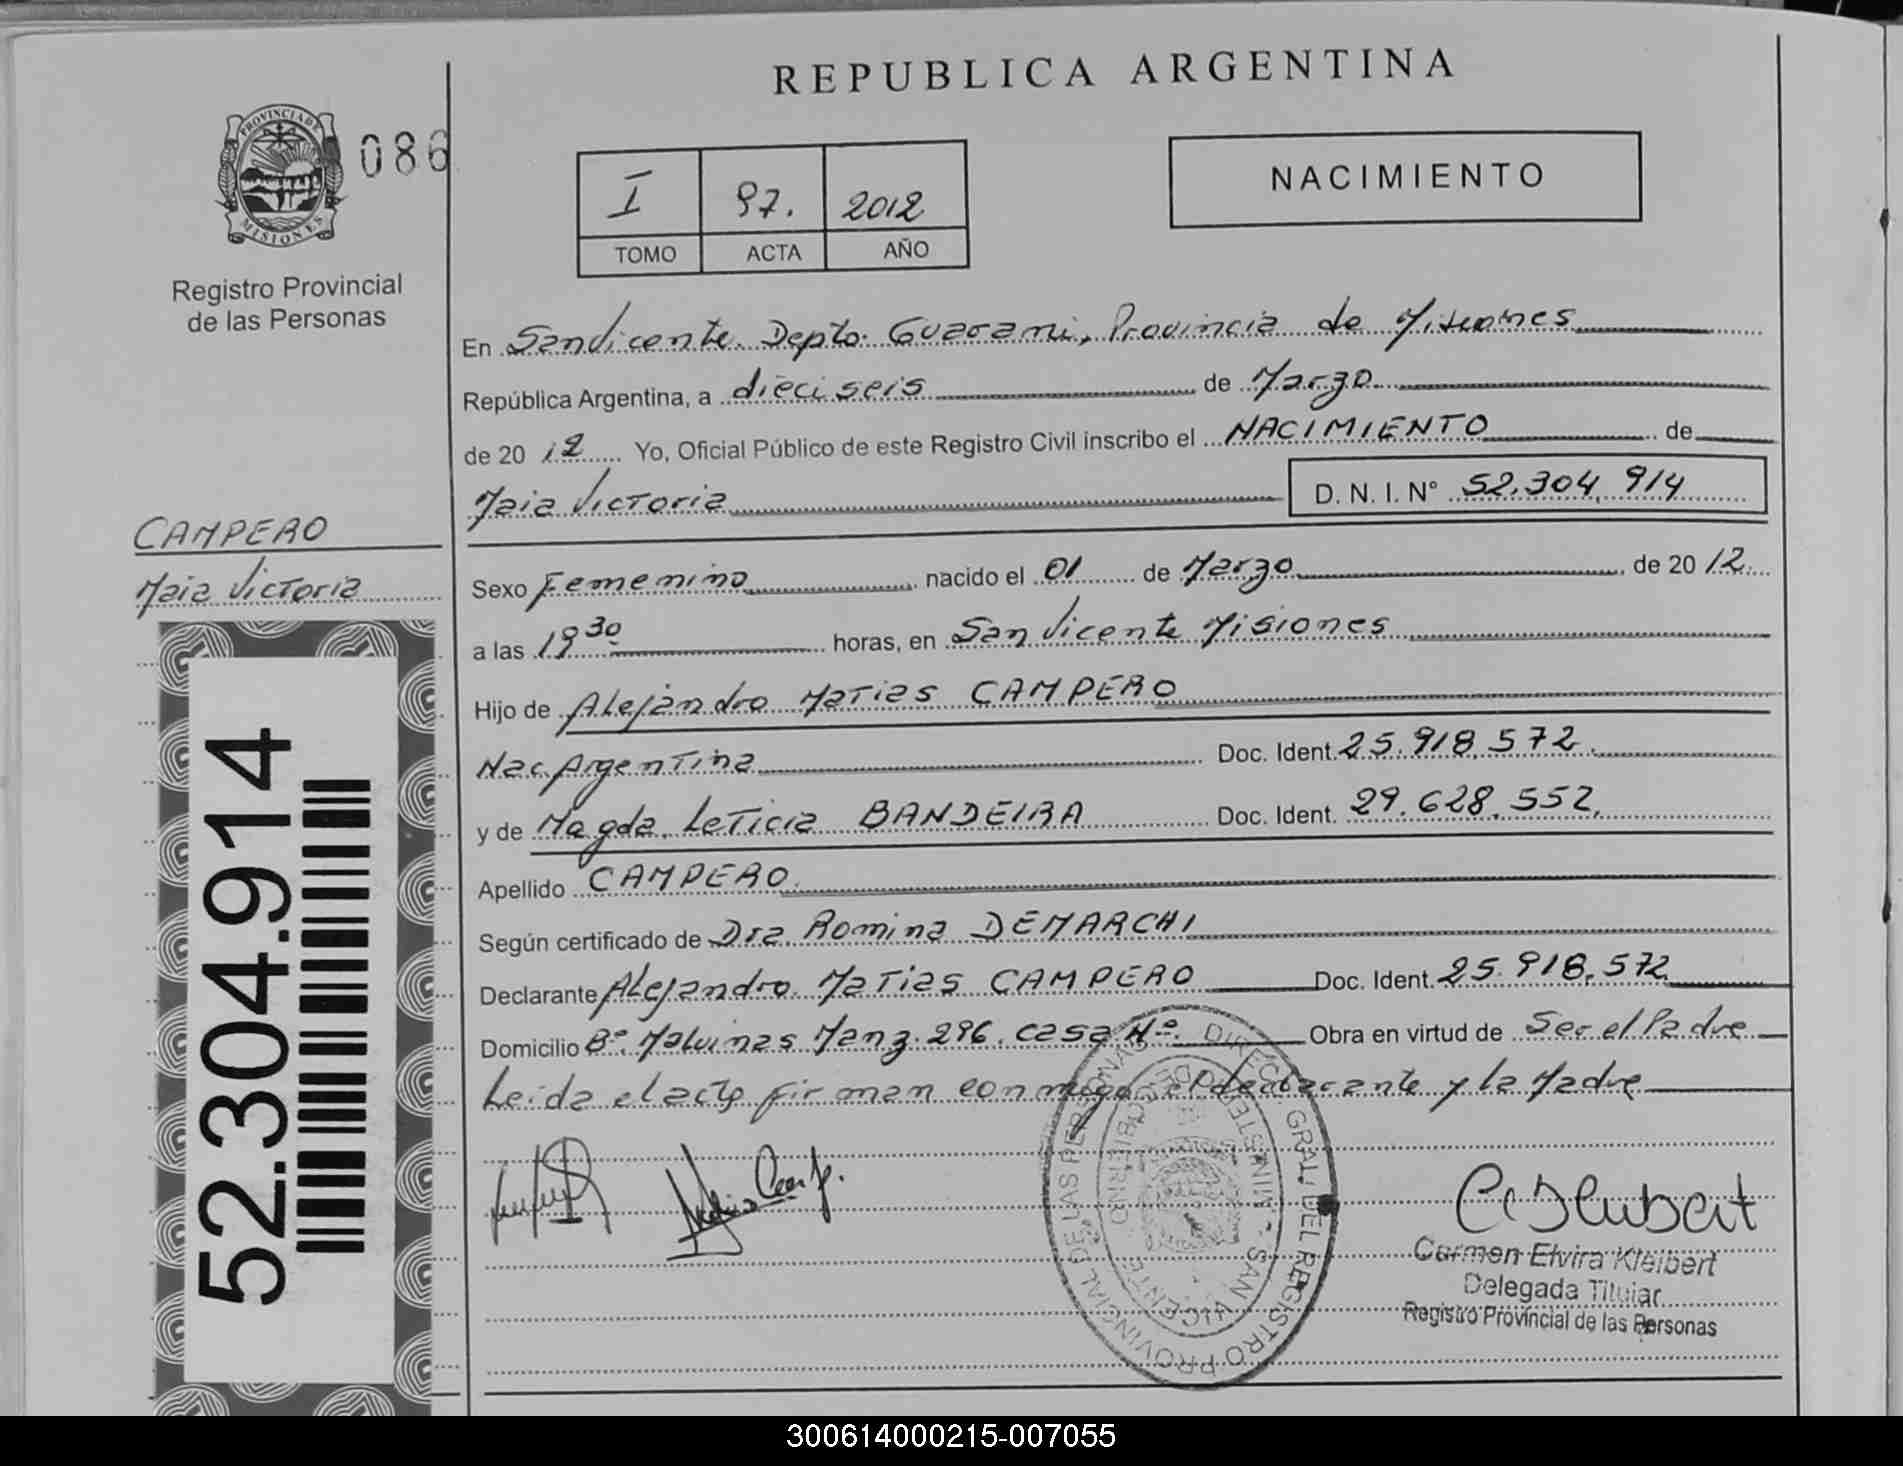 REPUBLICA ARGENTINA
PROVINCIA DE
MISIONES
086
Registro Provincial
de las Personas
I 97. 2012
TOMO ACTA AÑO
NACIMIENTO
En San Vicente. Depto. Guarani, Provincia de Misiones
República Argentina, a dieciseis de Marzo
de 20 12 Yo, Oficial Público de este Registro Civil inscribo el NACIMIENTO de
Maia Victoria D. N. I. N° 52.304.914
CAMPERO
Maia Victoria
52.304.914
Sexo Femenino nacido el 01 de Marzo de 20 12
a las 19 30 horas, en San Vicente Misiones
Hijo de Alejandro Matias CAMPERO
Nac. Argentina Doc. Ident. 25.918.572.
y de Magda Leticia BANDEIRA Doc. Ident. 29.628.552.
Apellido CAMPERO.
Según certificado de Dra Romina DEMARCHI
Declarante Alejandro Matias CAMPERO Doc. Ident. 25.918.572
Domicilio B° Malvinas Manz. 296. casa Nº. Obra en virtud de Ser el Padre
Leida el acta firman conmigo el declarante y la Madre
DIREC. GRAL. DEL REGISTRO PROVINCIAL DE LAS PERSONAS
MINISTERIO DE GOBIERNO
SAN VICENTE
Carmen Elvira Kleibert
Delegada Titular
Registro Provincial de las Personas
300614000215-007055